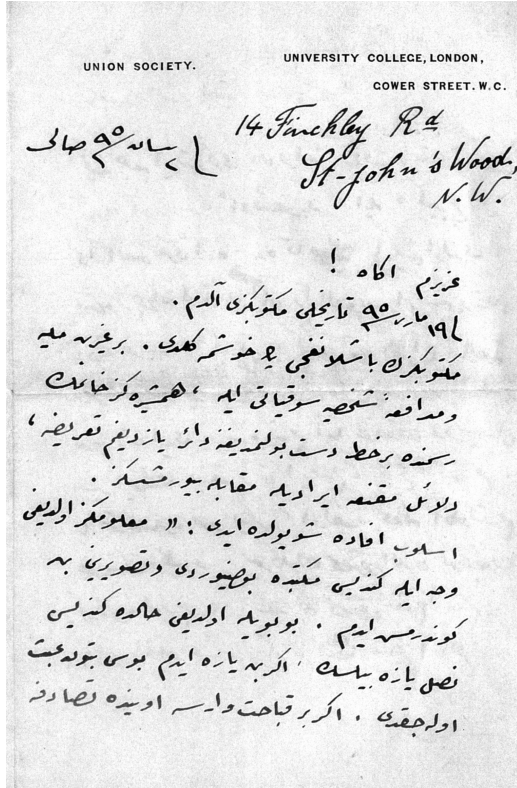 UNION SOCIETY.
UNIVERSITY COLLEGE, LONDON,
GOWER STREET. W.C.
14 Finchley Rd
St-John's Wood,
N.W.
نيسان ٩٥ صالى
عزيزم اكاه !
١٩ مارت ٩٥ تاريخلى مكتوبكزى آلدم .
مكتوبكزك باشلانغجى خوشمه كلدى .
ومدافعهٔ شخصيه سوقياتى ايله ، همشيره كز خانمك
رسمنده بر خط دست بولنمديغنه دائر يازديغم تعريضه ،
دلائل مقنعه ايراديله مقابله بيورمشسكز .
اسلوب افاده شو يولده ايدى : « معلومكز اولديغى
وجه ايله كنديسى مكتبده بولنيوردى وتصويرينى بن
كوندرمش ايدم . بو بويله اولديغى حالده كنديسى
نصل يازه بيلسك . اكر بن يازه ايدم بوسبتون عبث
اوله جقدى . اكر بر قباحت وارسه اوينده تصادف